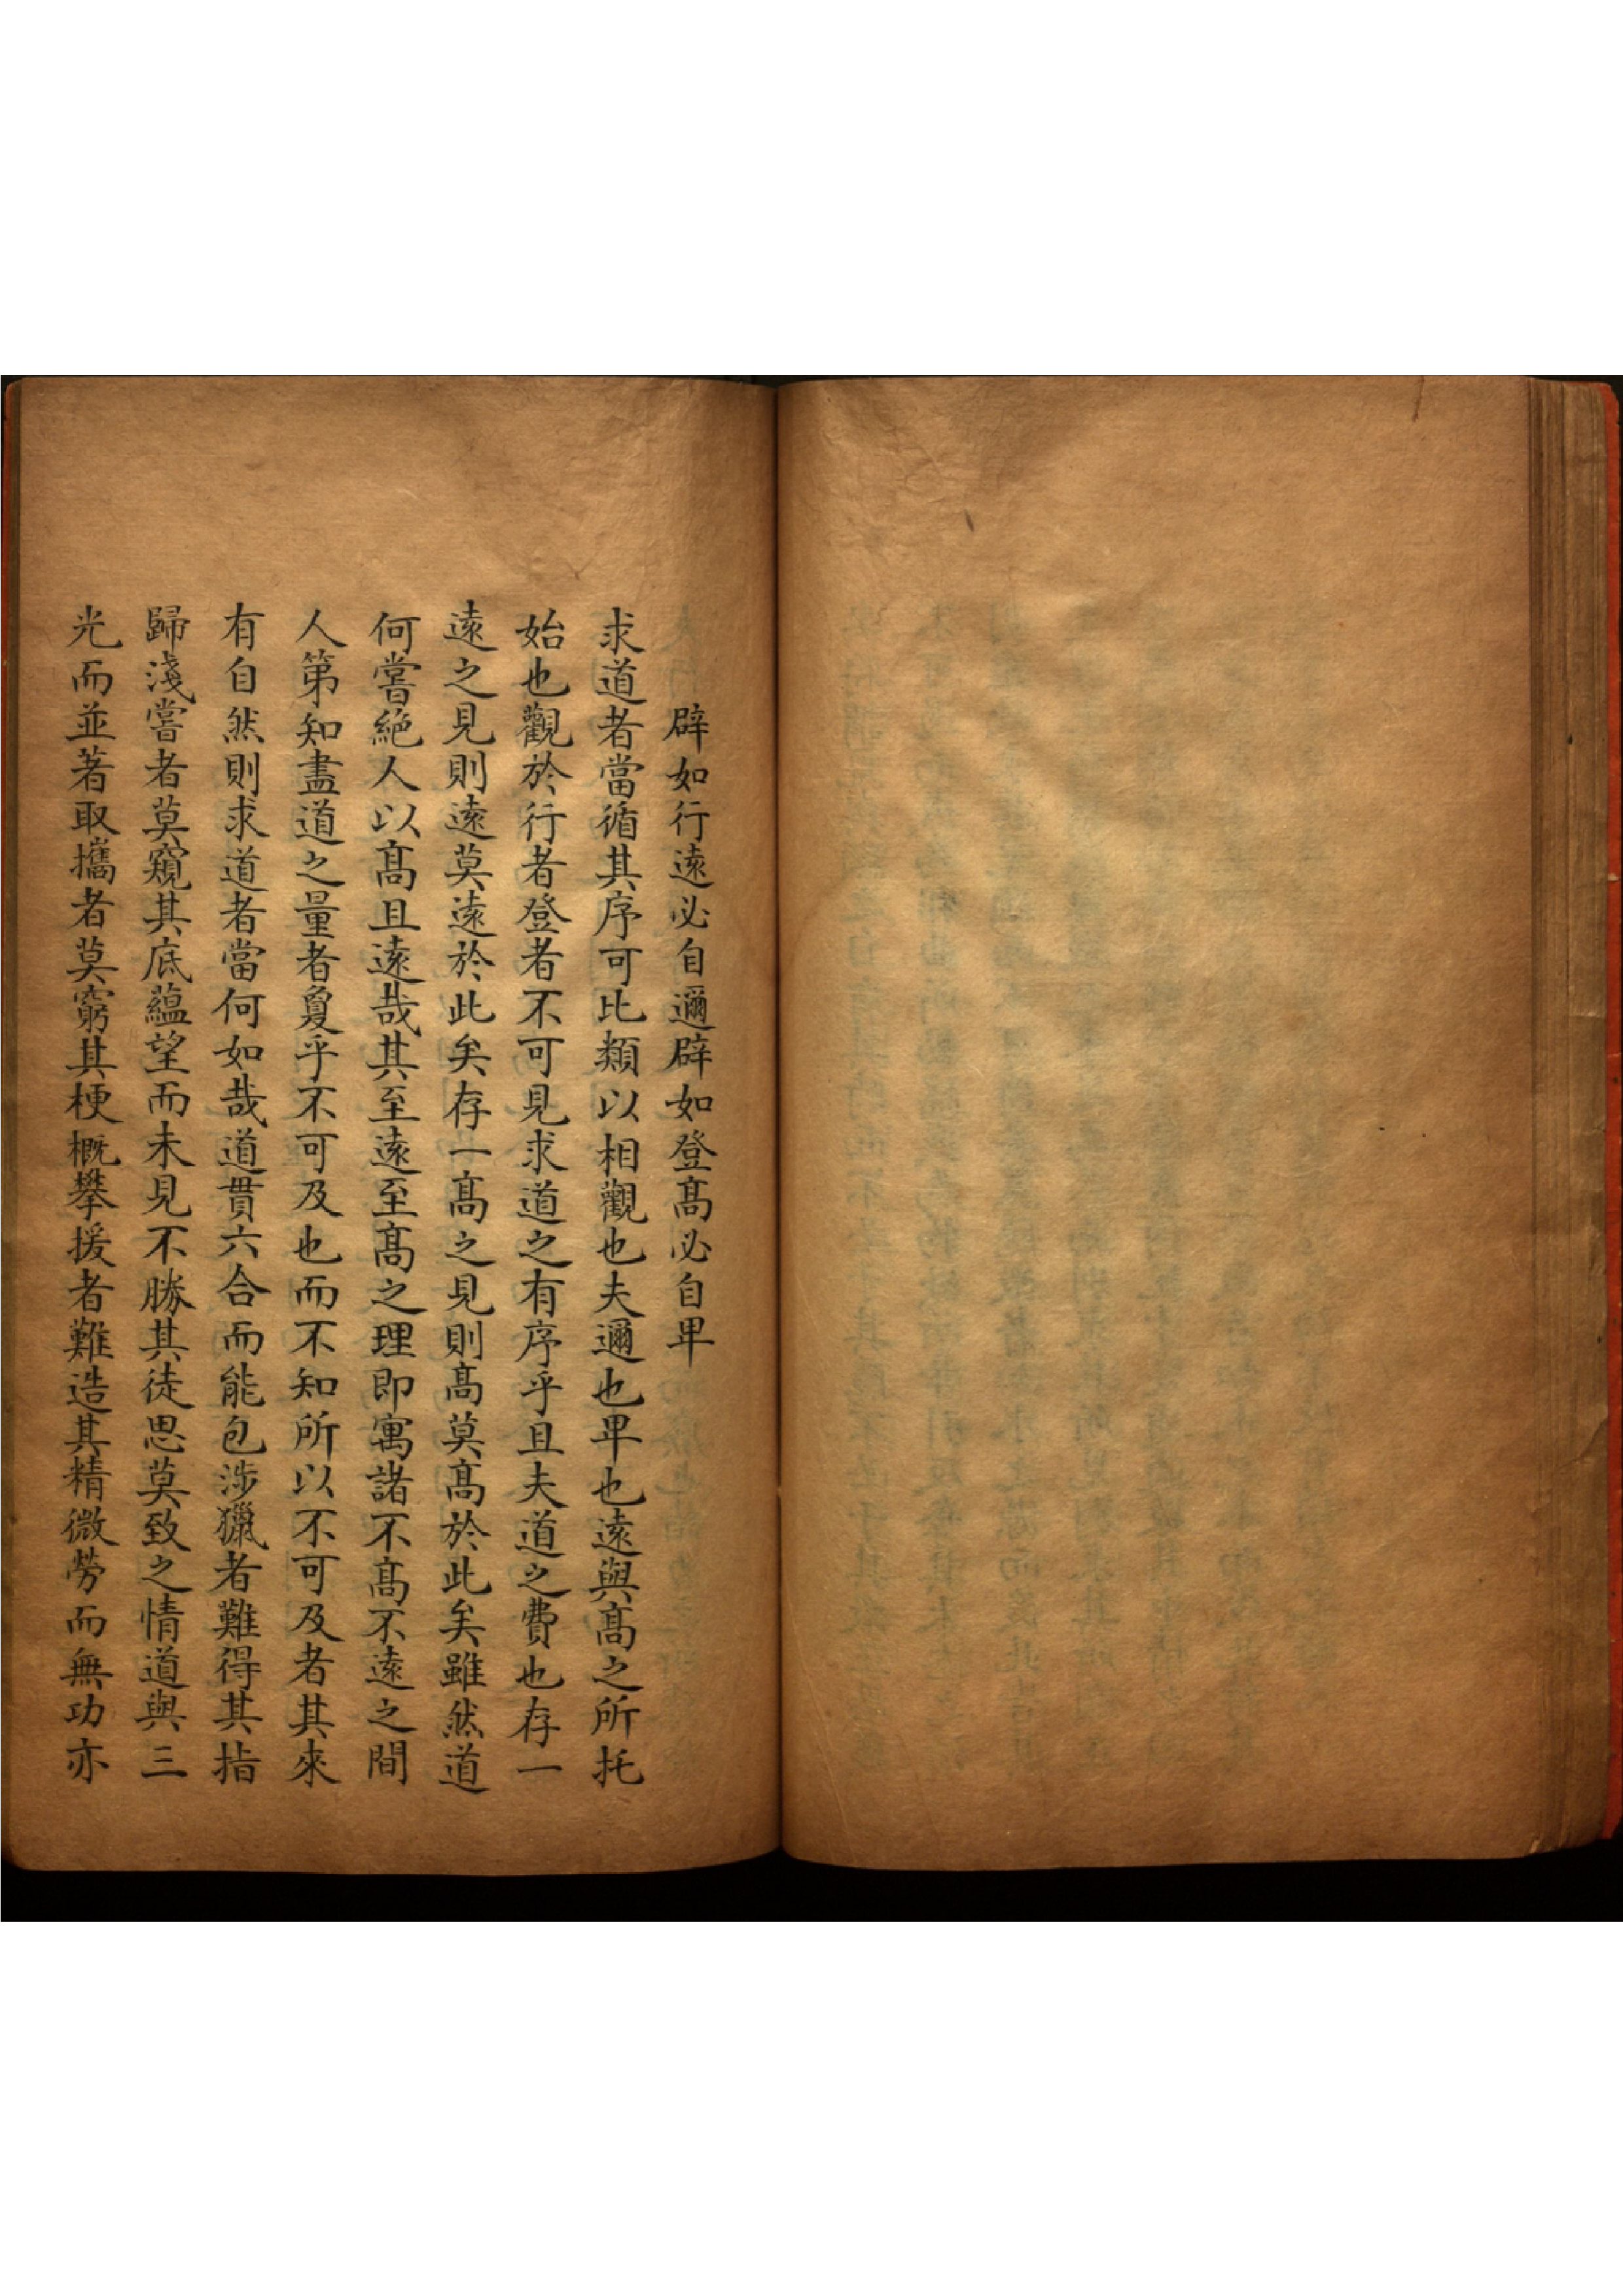 辟如行遠必自邇辟如登髙必自卑
求道者當循其序可比類以相觀也夫邇也卑也遠與髙之所托
始也觀於行者登者不可見求道之有序乎且夫道之費也存一
遠之見則遠莫遠於此矣存一髙之見則髙莫髙於此矣雖然道
何嘗絶人以髙且遠哉其至遠至髙之理即寓諸不髙不遠之間
人第知盡道之量者敻乎不可及也而不知所以不可及者其來
有自然則求道者當何如哉道貫六合而能包涉獵者難得其指
歸淺嘗者莫窺其底蘊望而未見不勝其徒思莫致之情道與三
光而並著取攜者莫窮其梗概攀援者難造其精微勞而無功亦